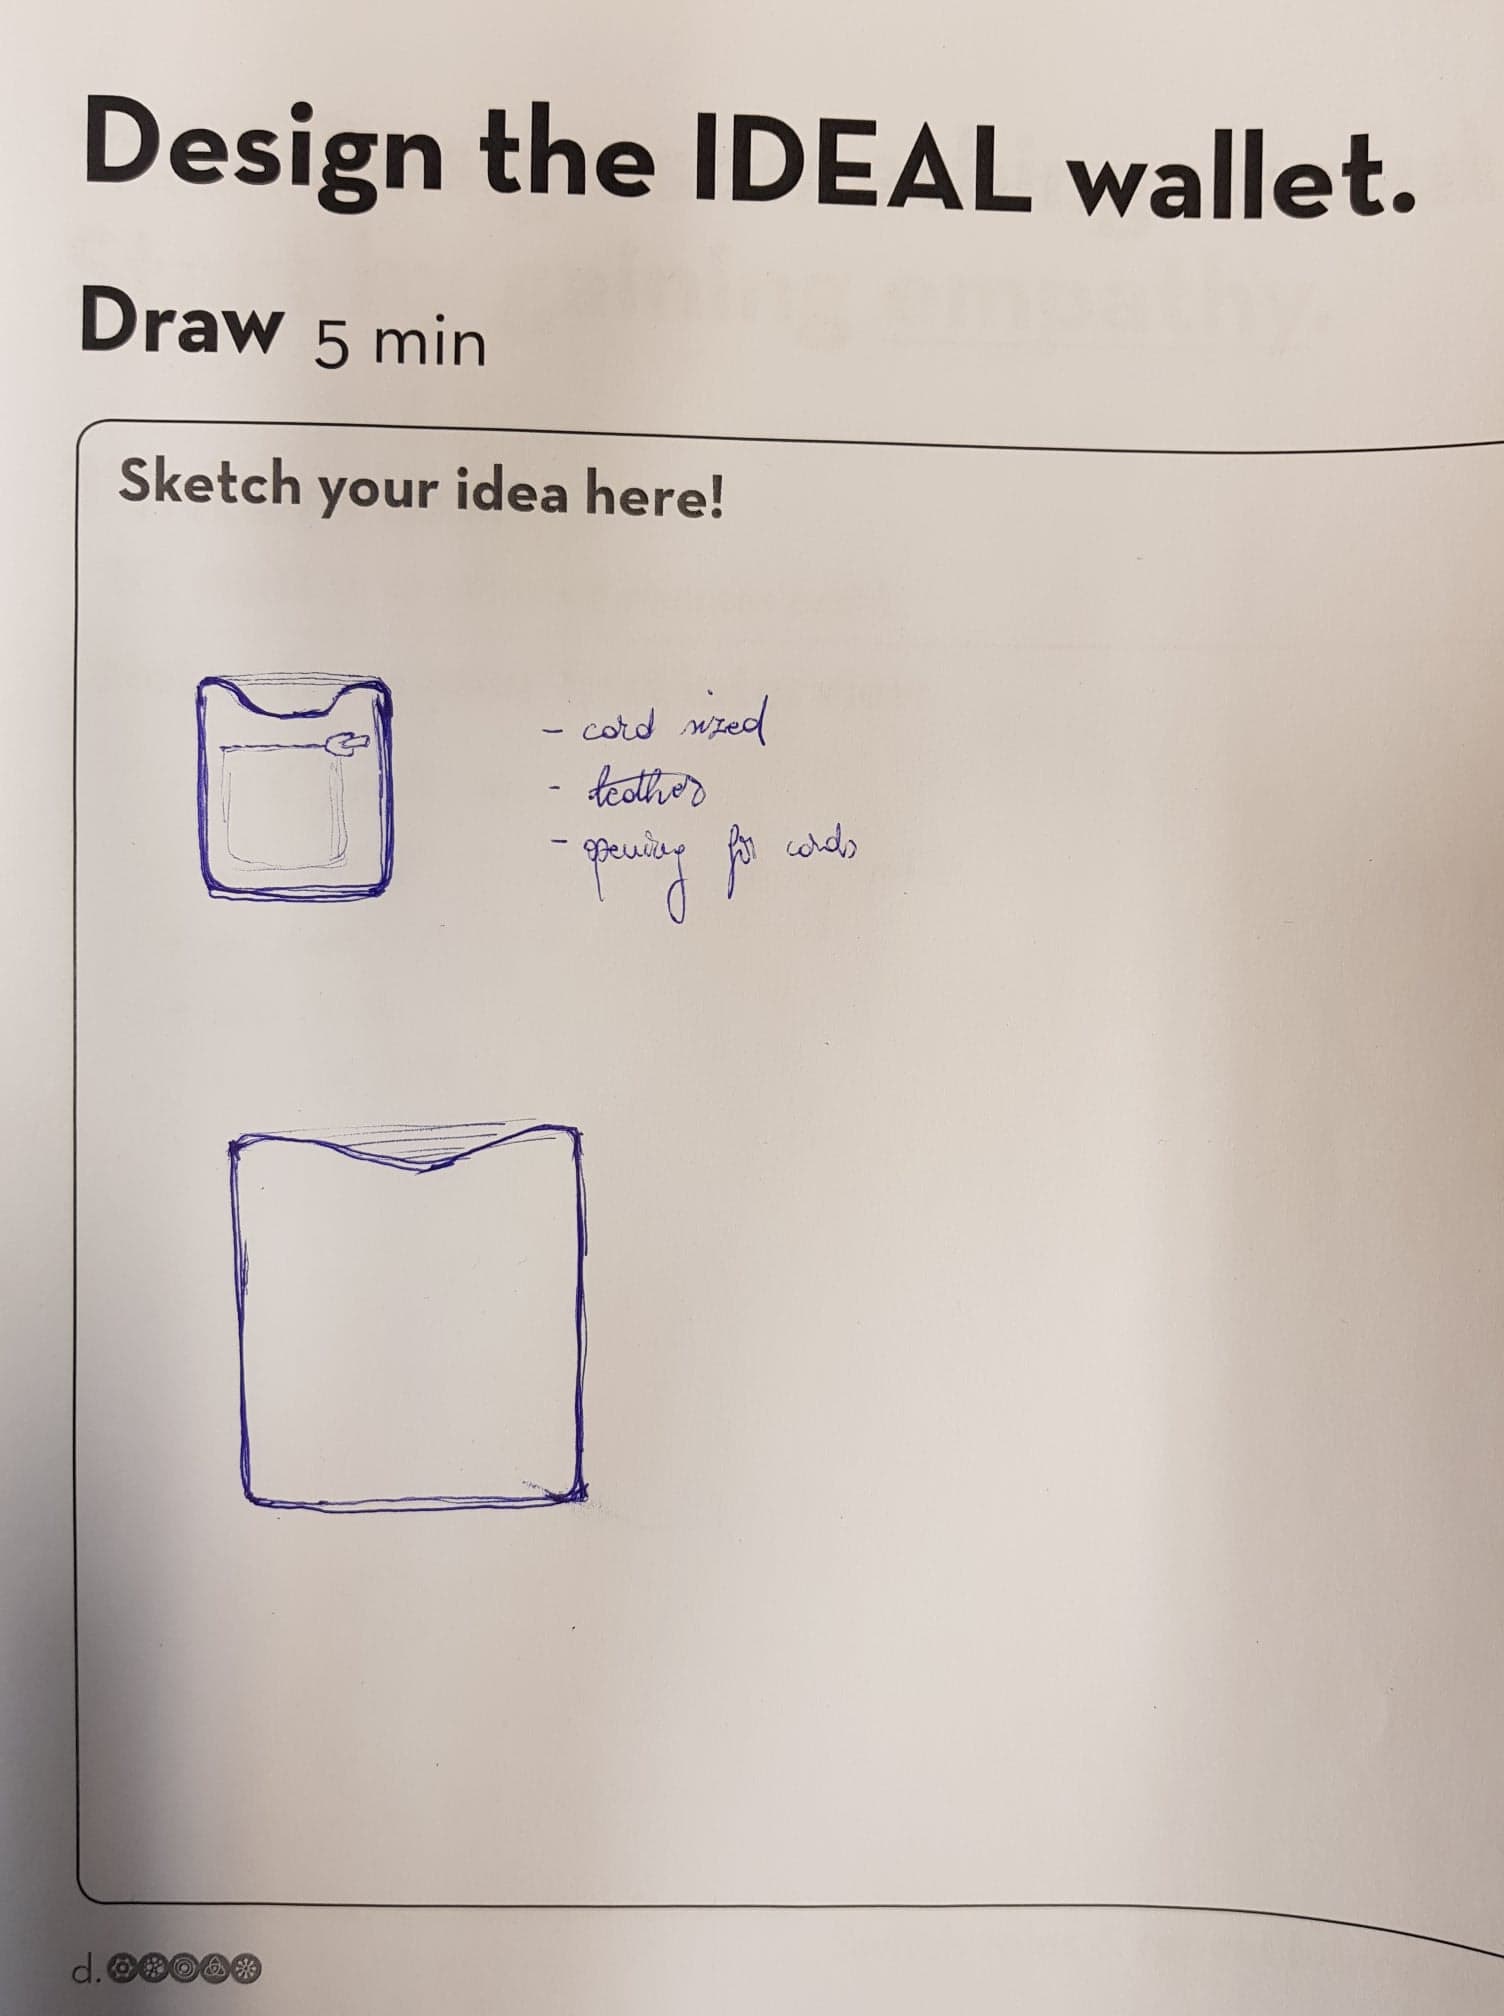 Design the IDEAL wallet.
Draw 5 min
Sketch your idea here!
- card sized
- leather
- opening for cards
d.